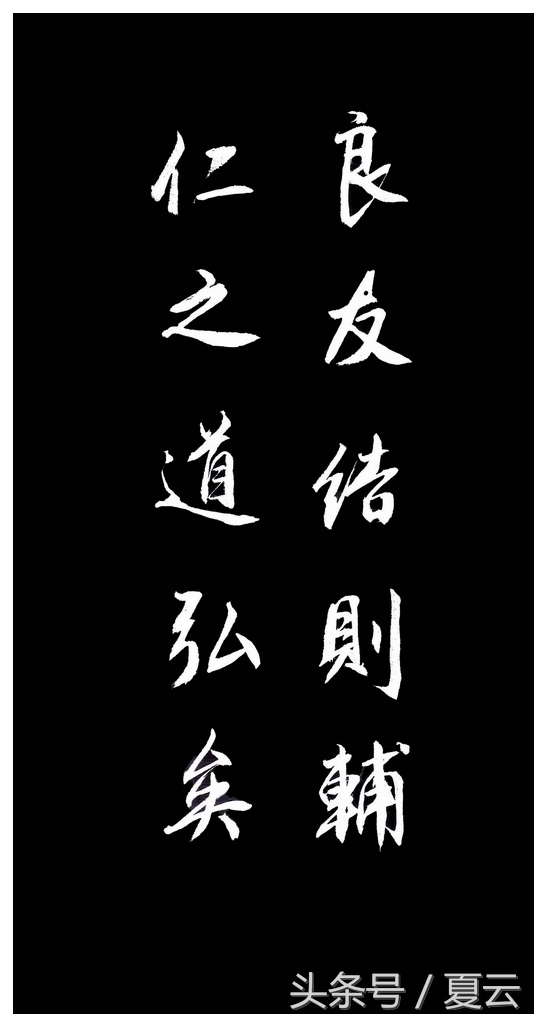 良友结則輔
仁之道弘矣
头条号 / 夏云